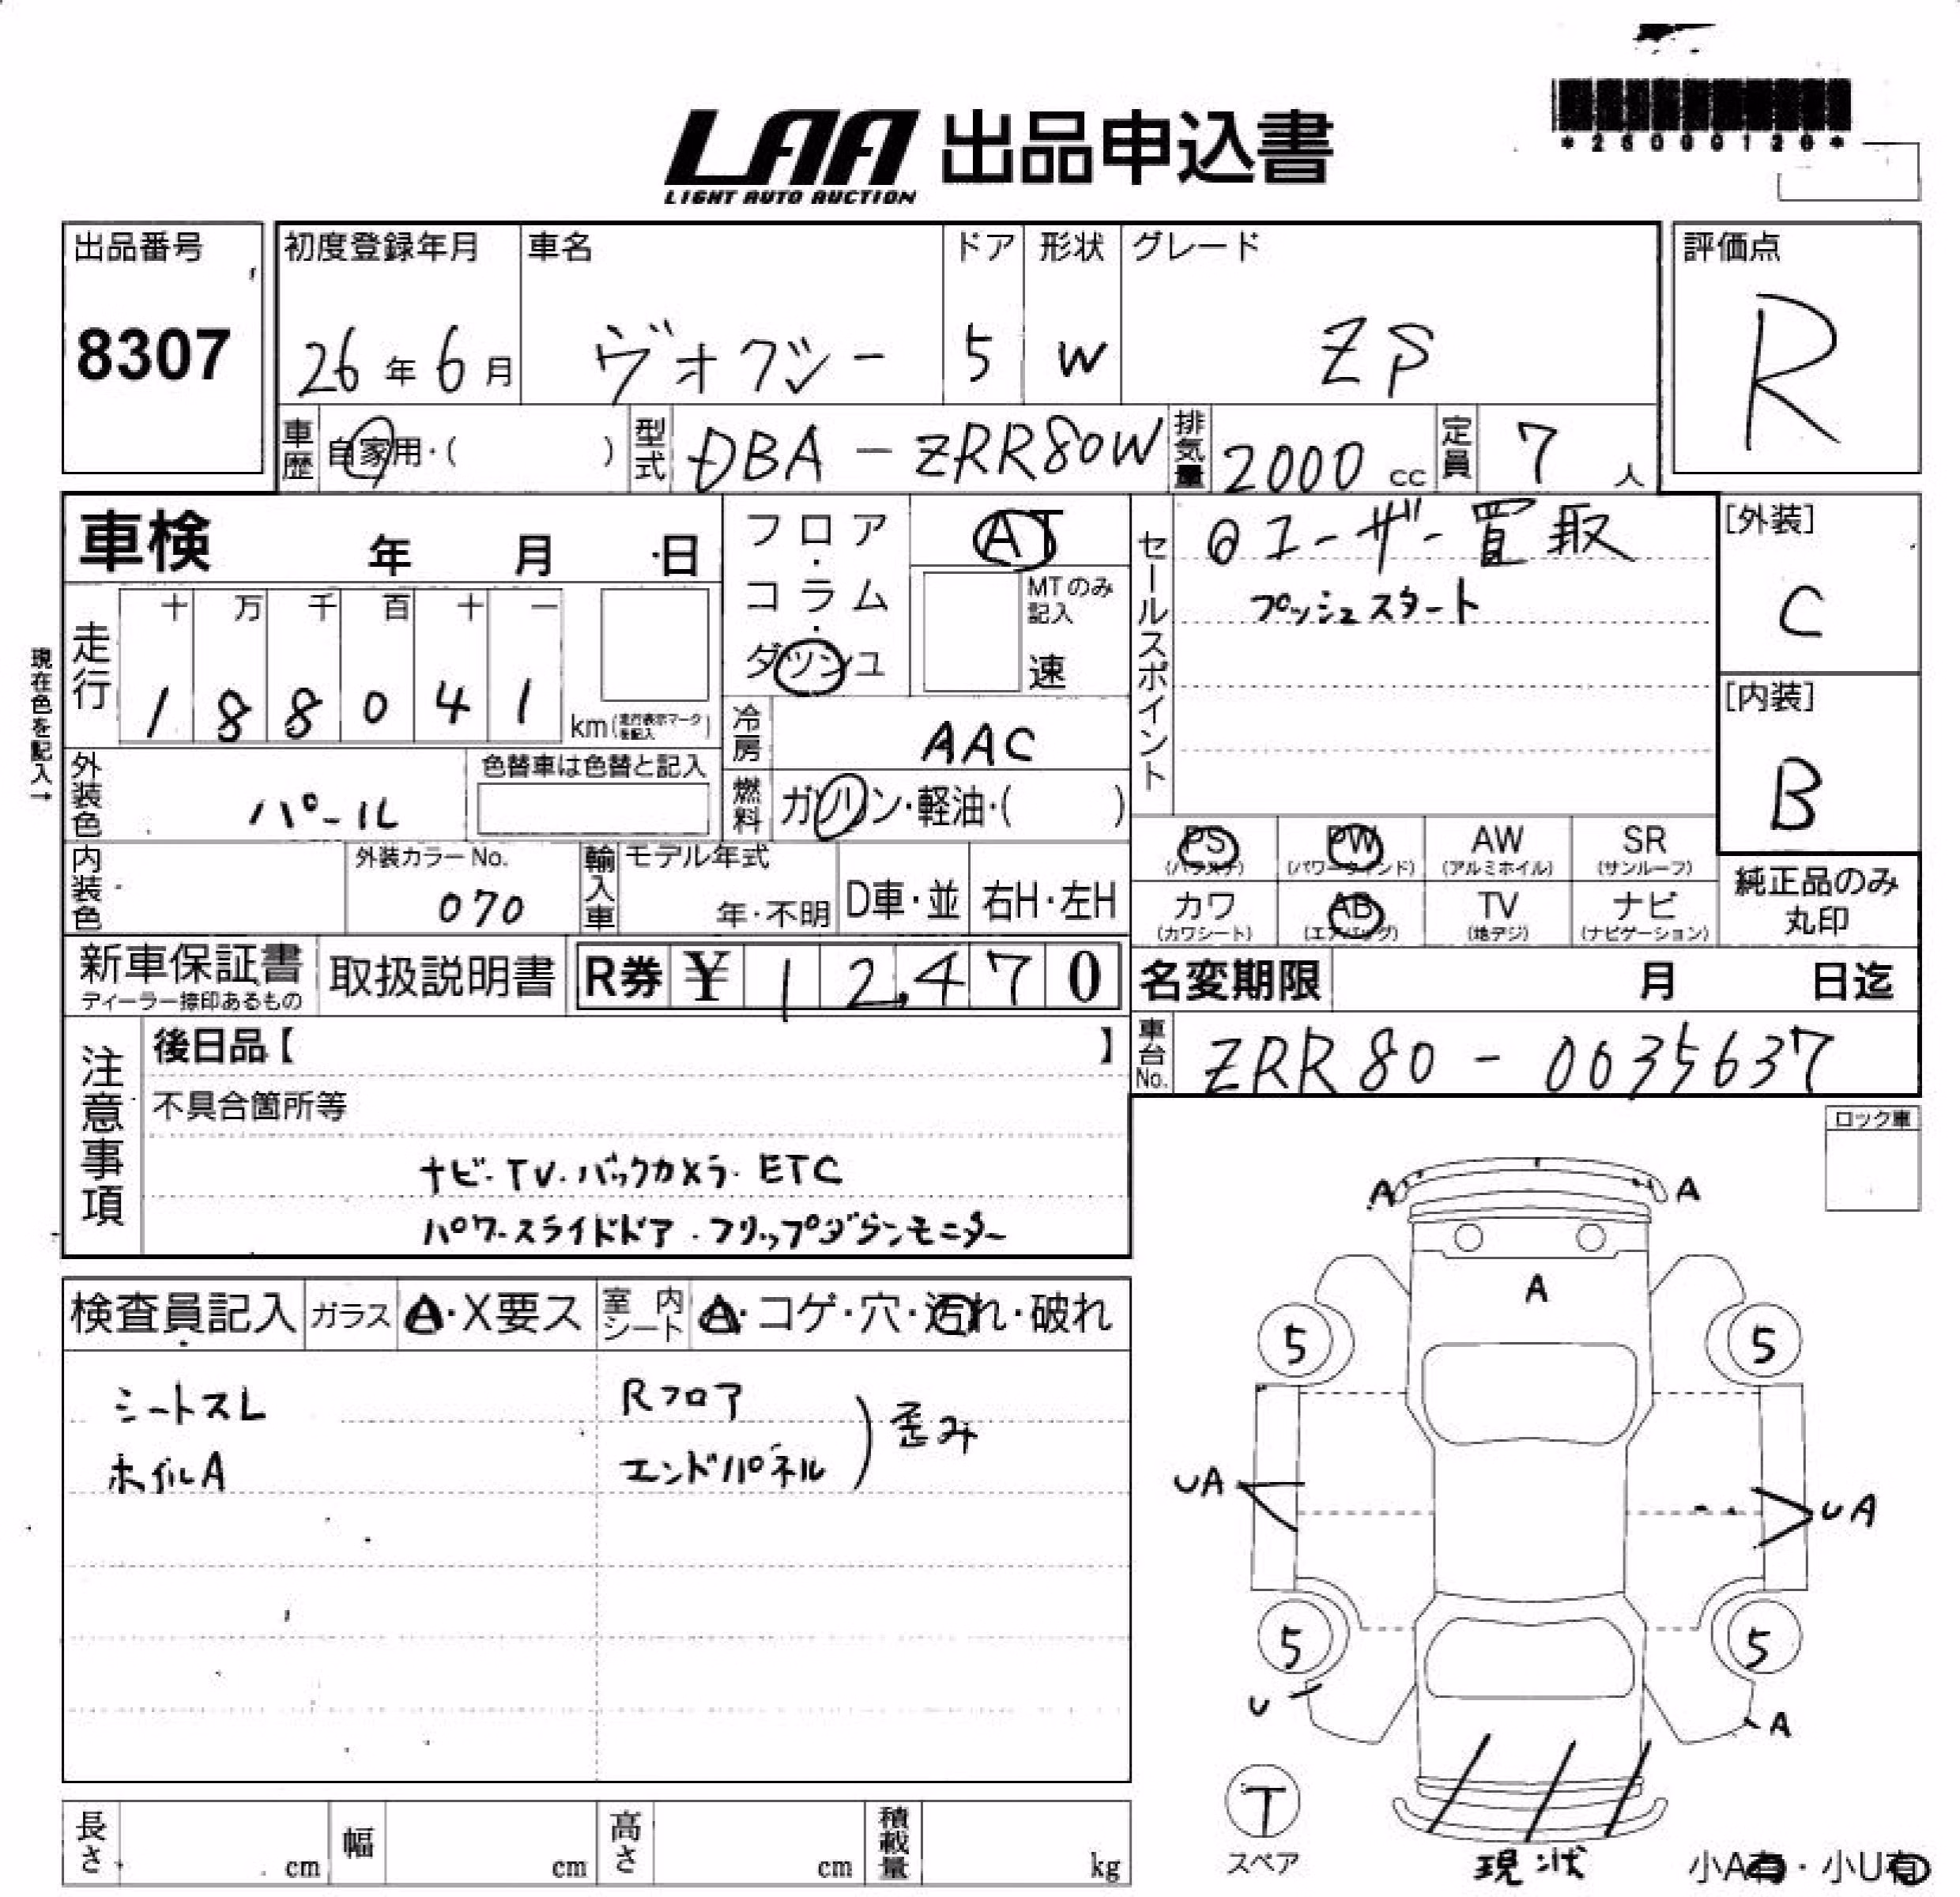 *26000120*
LAA 出品申込書
LIGHT AUTO AUCTION
出品番号
8307
初度登録年月
26年6月
車名
ヴォクシー
ドア
5
形状
W
グレード
ZS
評価点
R
車歴 自家用・( )
型式 DBA-ZRR80W
排気量 2000 cc
定員 7 人
車検 年 月 日
フロア・コラム・ダッシュ
AT
MTのみ記入
速
セールスポイント
◎ユーザー買取
プッシュスタート
[外装]
C
[内装]
B
現在色を記入→
走行
十 万 千 百 十 一
1 8 8 0 4 1
km (走行表示マークを記入)
冷房 AAC
燃料 ガソリン・軽油・( )
外装色 パール
色替車は色替と記入
内装色
外装カラーNo.
070
輸入車 モデル年式
年・不明
D車・並
右H・左H
PS (パワステ)
PW (パワーウィンド)
AW (アルミホイル)
SR (サンルーフ)
カワ (カワシート)
AB (エアバッグ)
TV (地デジ)
ナビ (ナビゲーション)
純正品のみ
丸印
新車保証書
ディーラー捺印あるもの
取扱説明書
R券 ¥ 12,470
名変期限 月 日迄
車台No. ZRR80-0035637
注意事項
後日品【 】
不具合箇所等
ナビ・TV・バックカメラ・ETC
パワースライドドア・フリップダウンモニター
ロック車
検査員記入
ガラス A・X要ス
室内シート A・コゲ・穴・汚れ・破れ
シートスレ
ホイルA
Rフロア
エンドパネル
歪み
A A
A
5 5
UA UA
5 5
U A
T
スペア
現状
小A有・小U有
長さ cm
幅 cm
高さ cm
積載量 kg